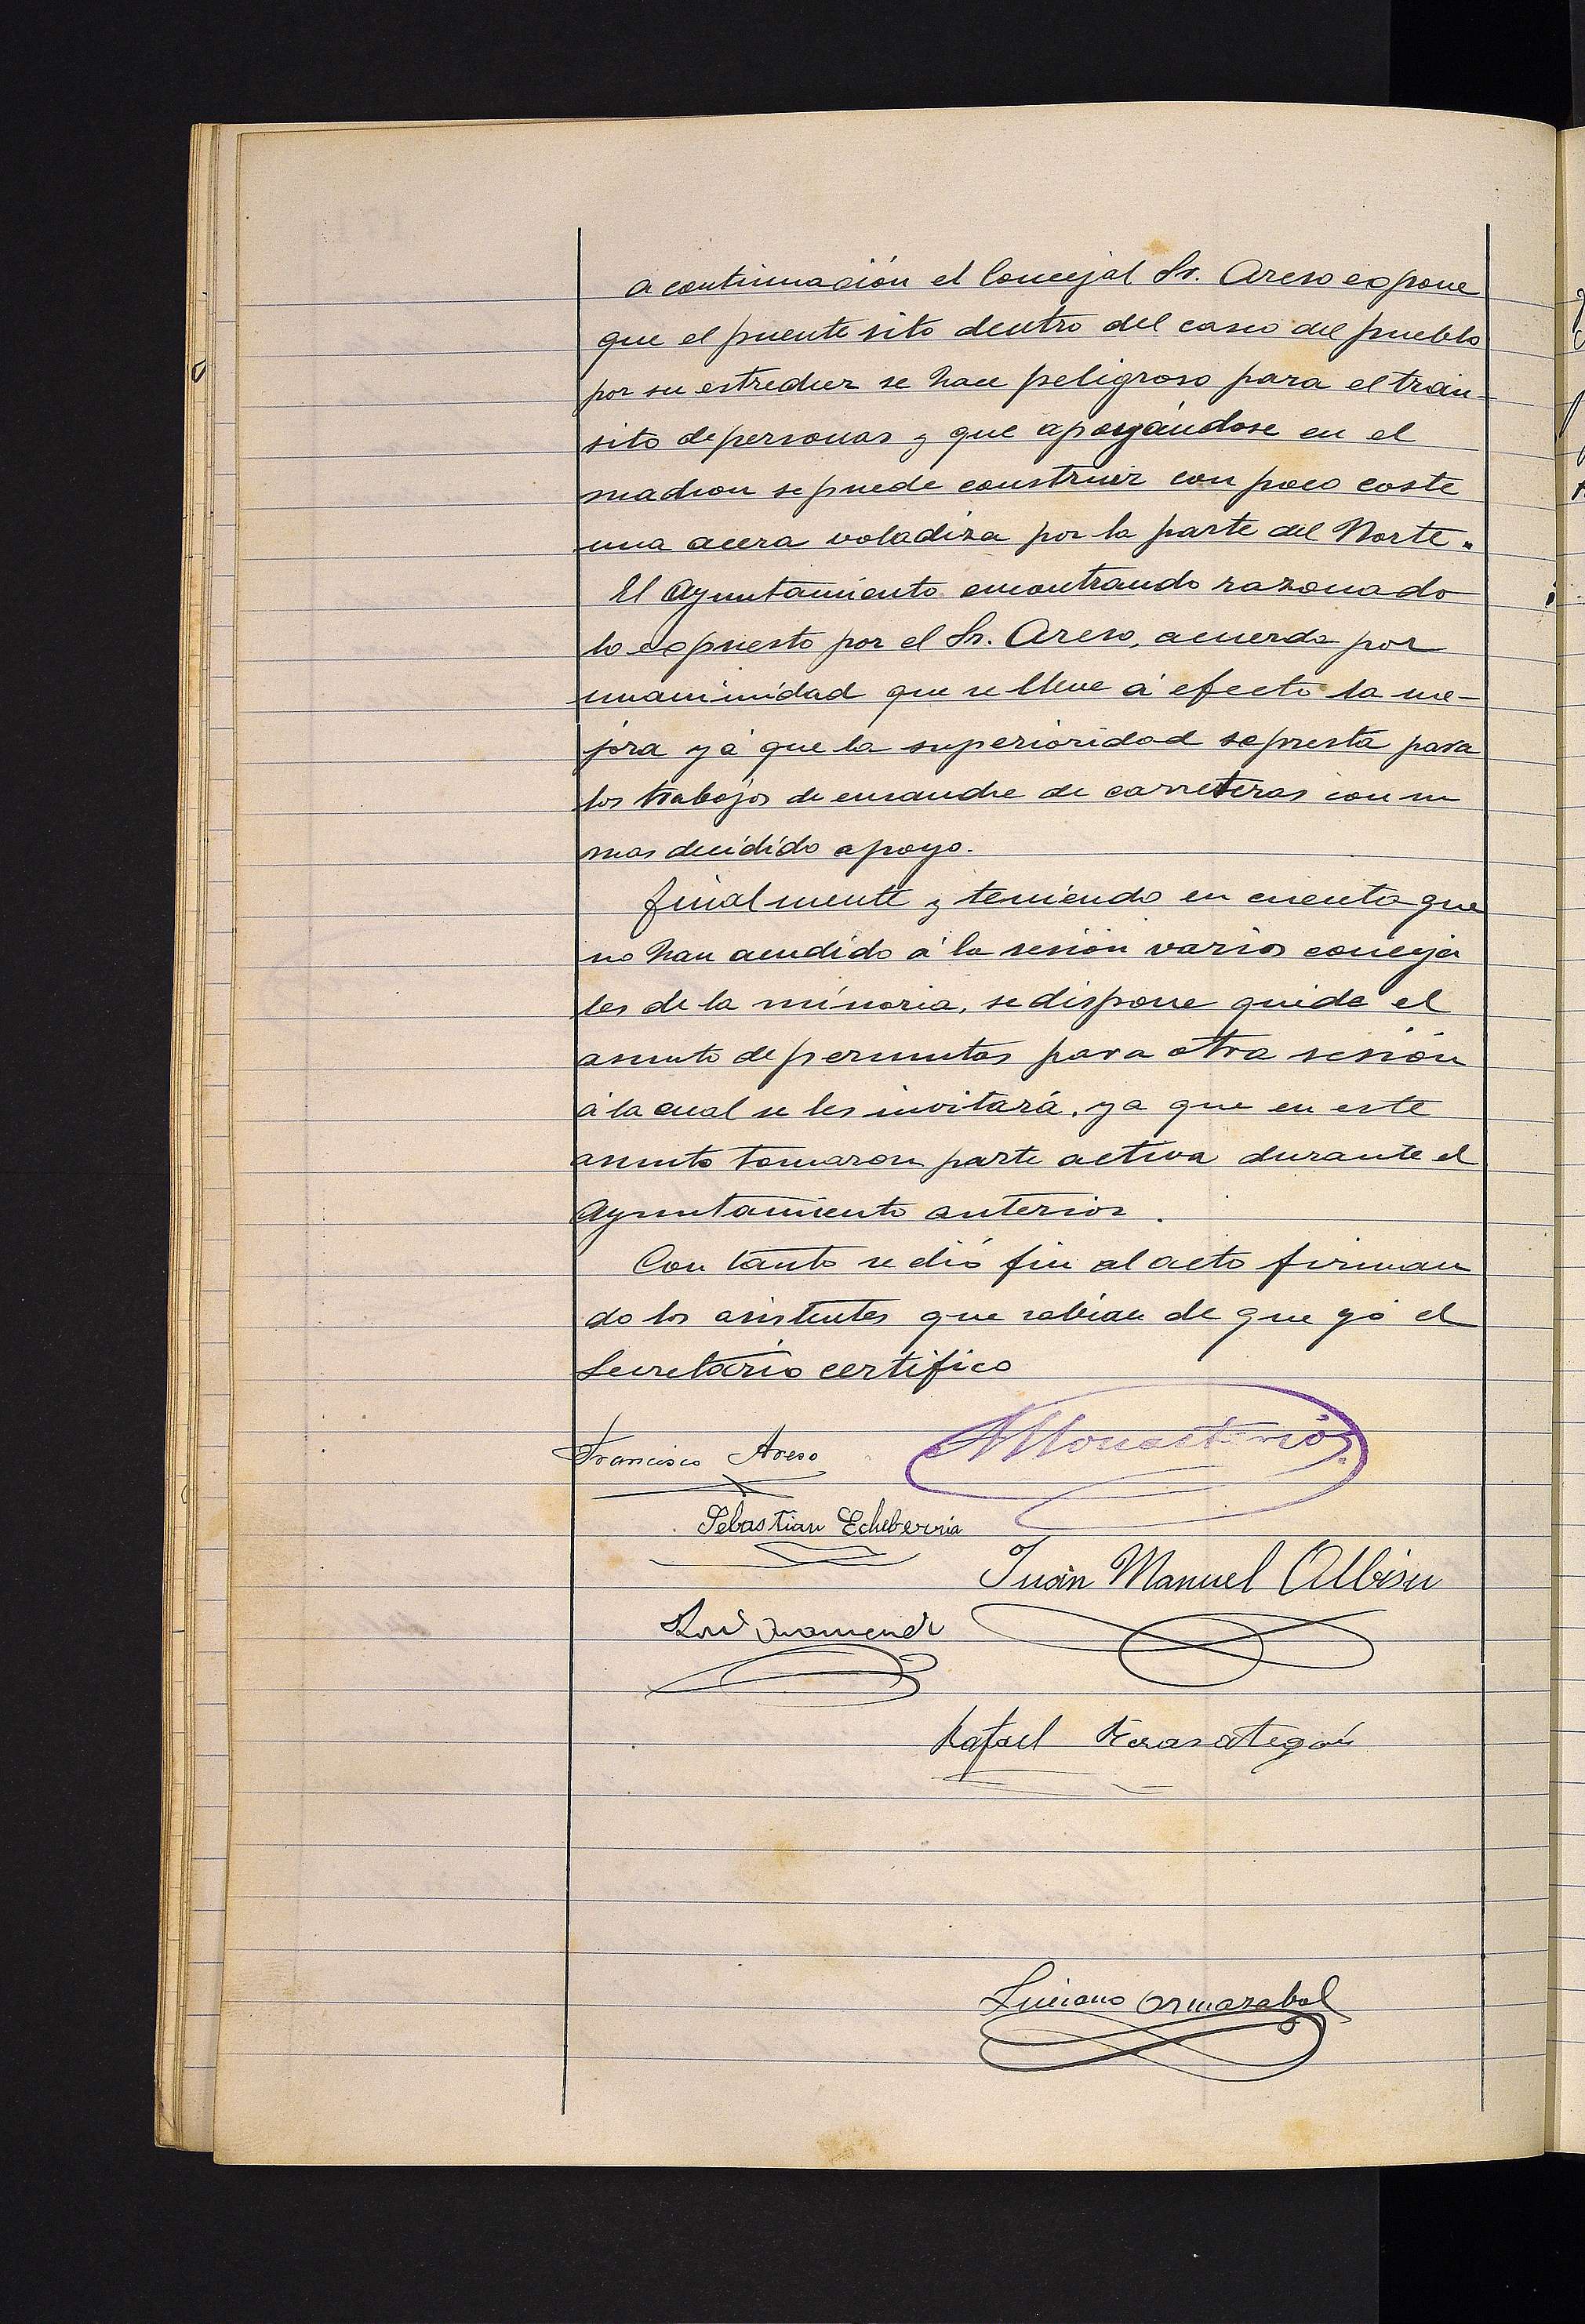 a continuación el Concejal Sr. Areso expone
que el puente sito dentro del casco del pueblo
por su estrechez se hace peligroso para el trán-
sito de personas y que apoyándose en el
machon se puede construir con poco coste
una acera voladiza por la parte del Norte.
El Ayuntamiento encontrando razonado
lo expuesto por el Sr. Areso, acuerda por
unanimidad que se lleve á efecto la me-
jora yá que la superioridad se presta para
los trabajos de ensanche de carreteras con su
mas decidido apoyo.
finalmente y teniendo en cuenta que
no han acudido á la sesión varios conceja
les de la minoria, se dispone quede el
asunto de permutas para otra sesión
á la cual se les invitará, ya que en este
asunto tomaron parte activa durante el
Ayuntamiento anterior.
Con tanto se dió fin al acto firman
do los asistentes que sabian de que yó el
Secretario certifico
Francisco Areso
A Monasterio
Sebastian Echeberria
Juan Manuel Albisu
José
Rafael
Luciano Ormazabal